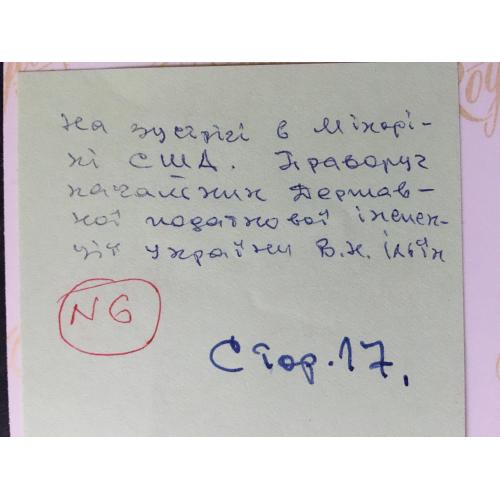 На зустрічі в Мінфрі-
ні США. Праворуч
начальник Держав-
ної податкової інспек-
ції України В.Н. Ільїн
N6
Стор. 17.